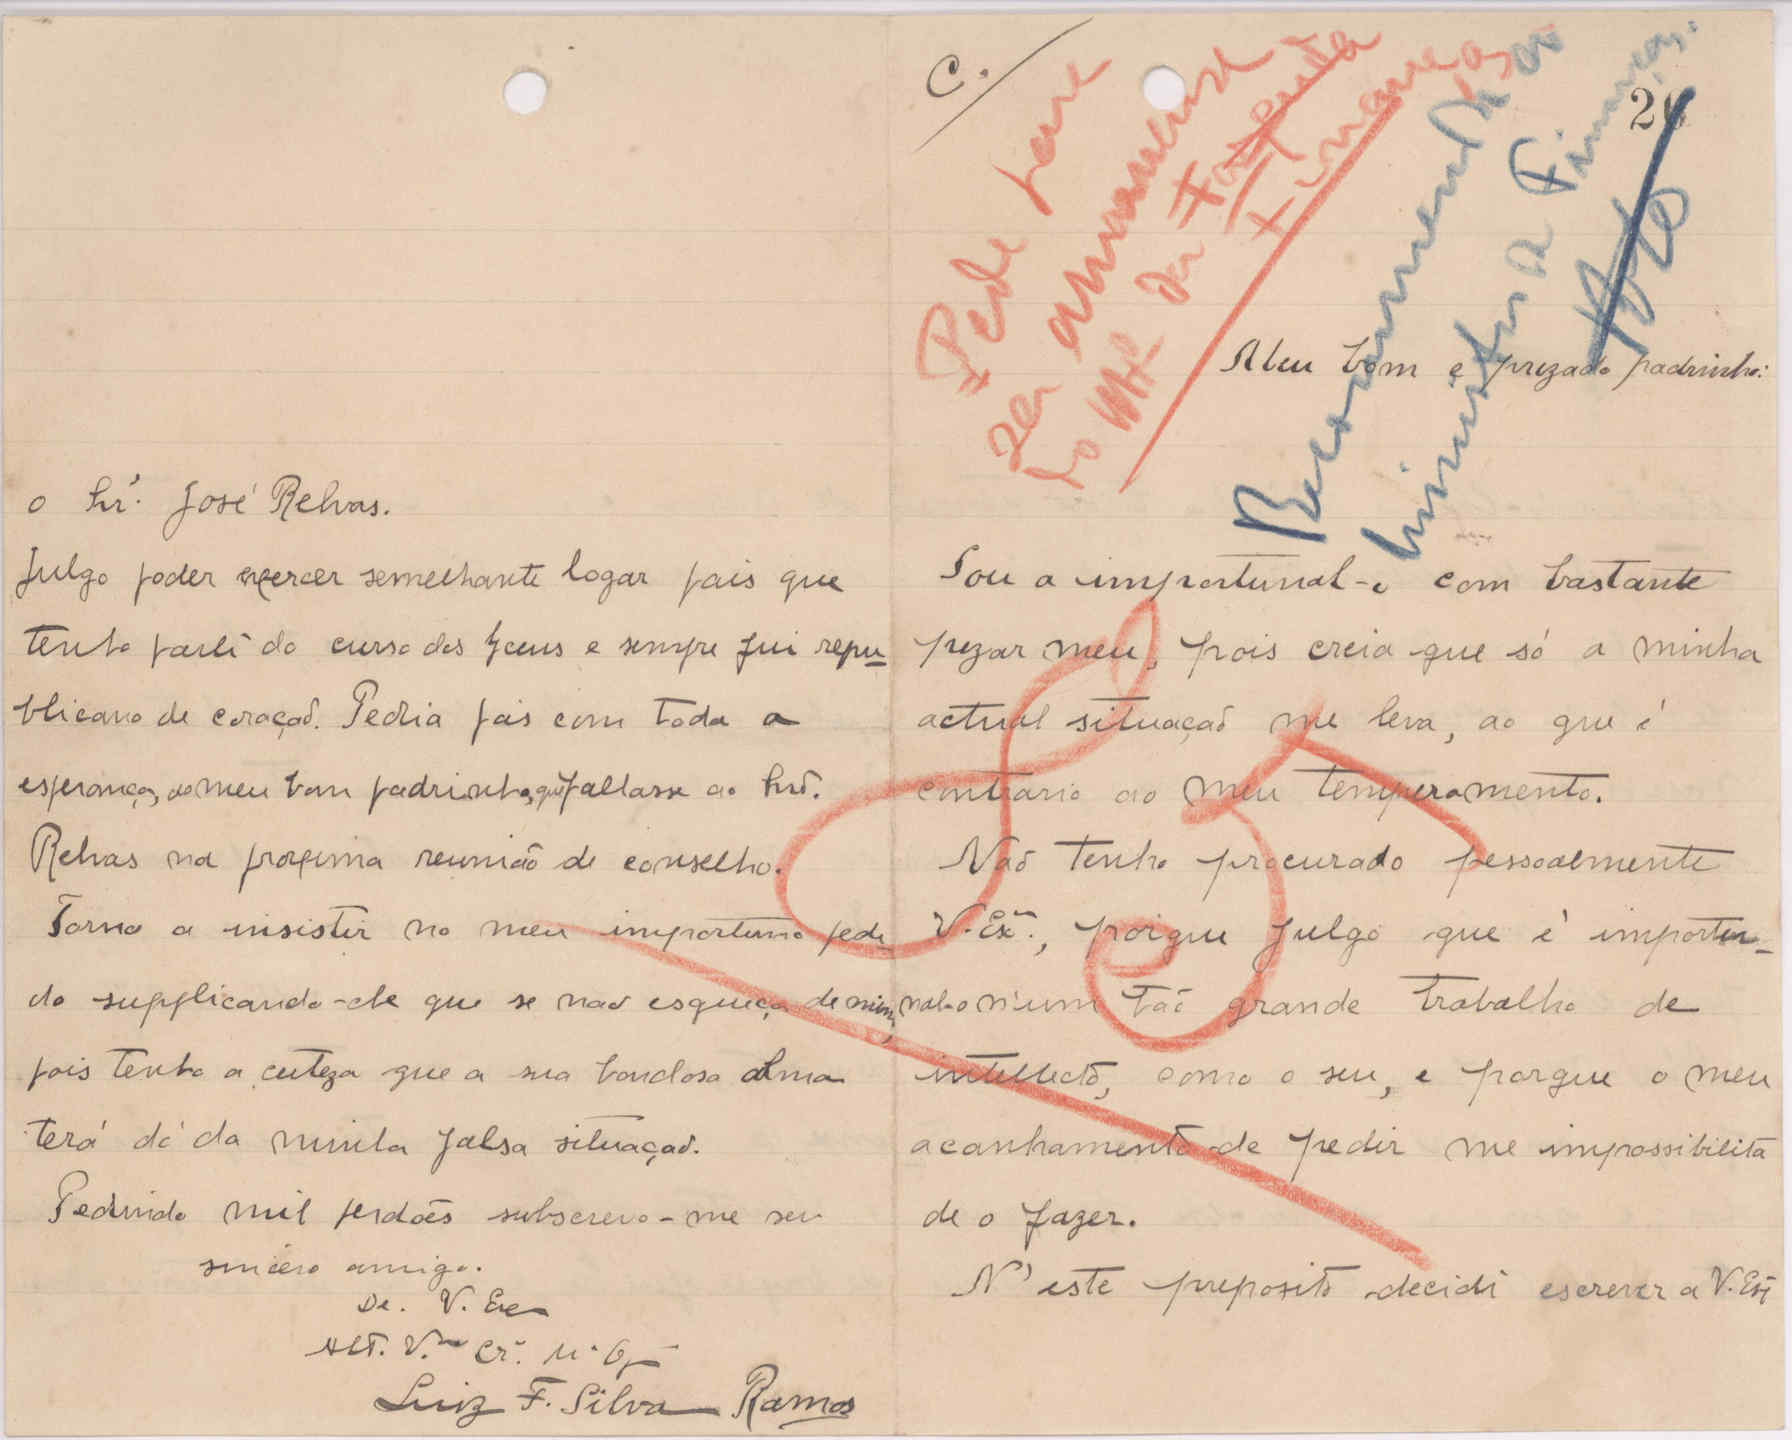 C.
Pede para
ser amanuense
do Mº da Fazenda
Finanças
Recommendar ao
ministro a Finanças.
26
Meu bom e prezado padrinho:
Vou a importunal-o com bastante
pezar meu, pois creia que só a minha
actual situação me leva, ao que é
contrario ao meu temperamento.
Não tenho procurado pessoalmente
V. Exª., porque julgo que é importu-
nal-o n'um tão grande trabalho de
intellecto, como o seu, e porque o meu
acanhamento de pedir me impossibilita
de o fazer.
N'este preposito decidi escrever a V. Exª
85
o Snr. José Relvas.
Julgo poder exercer semelhante logar pois que
tenho parte do curso dos lyceus e sempre fui repu-
blicano de coração. Pedia pois com toda a
esperança, ao meu bom padrinho, que fallasse ao Snr.
Relvas na proxima reunião de conselho.
Torno a insistir no meu importuno pedi-
do supplicando-lhe que se não esqueça de mim,
pois tenho a certeza que a sua bondosa alma
terá dó da minha falsa situação.
Pedindo mil perdões subscrevo-me seu
sincero amigo.
De. V. Exa
Att. V.or Cr.
Luiz F. Silva Ramos